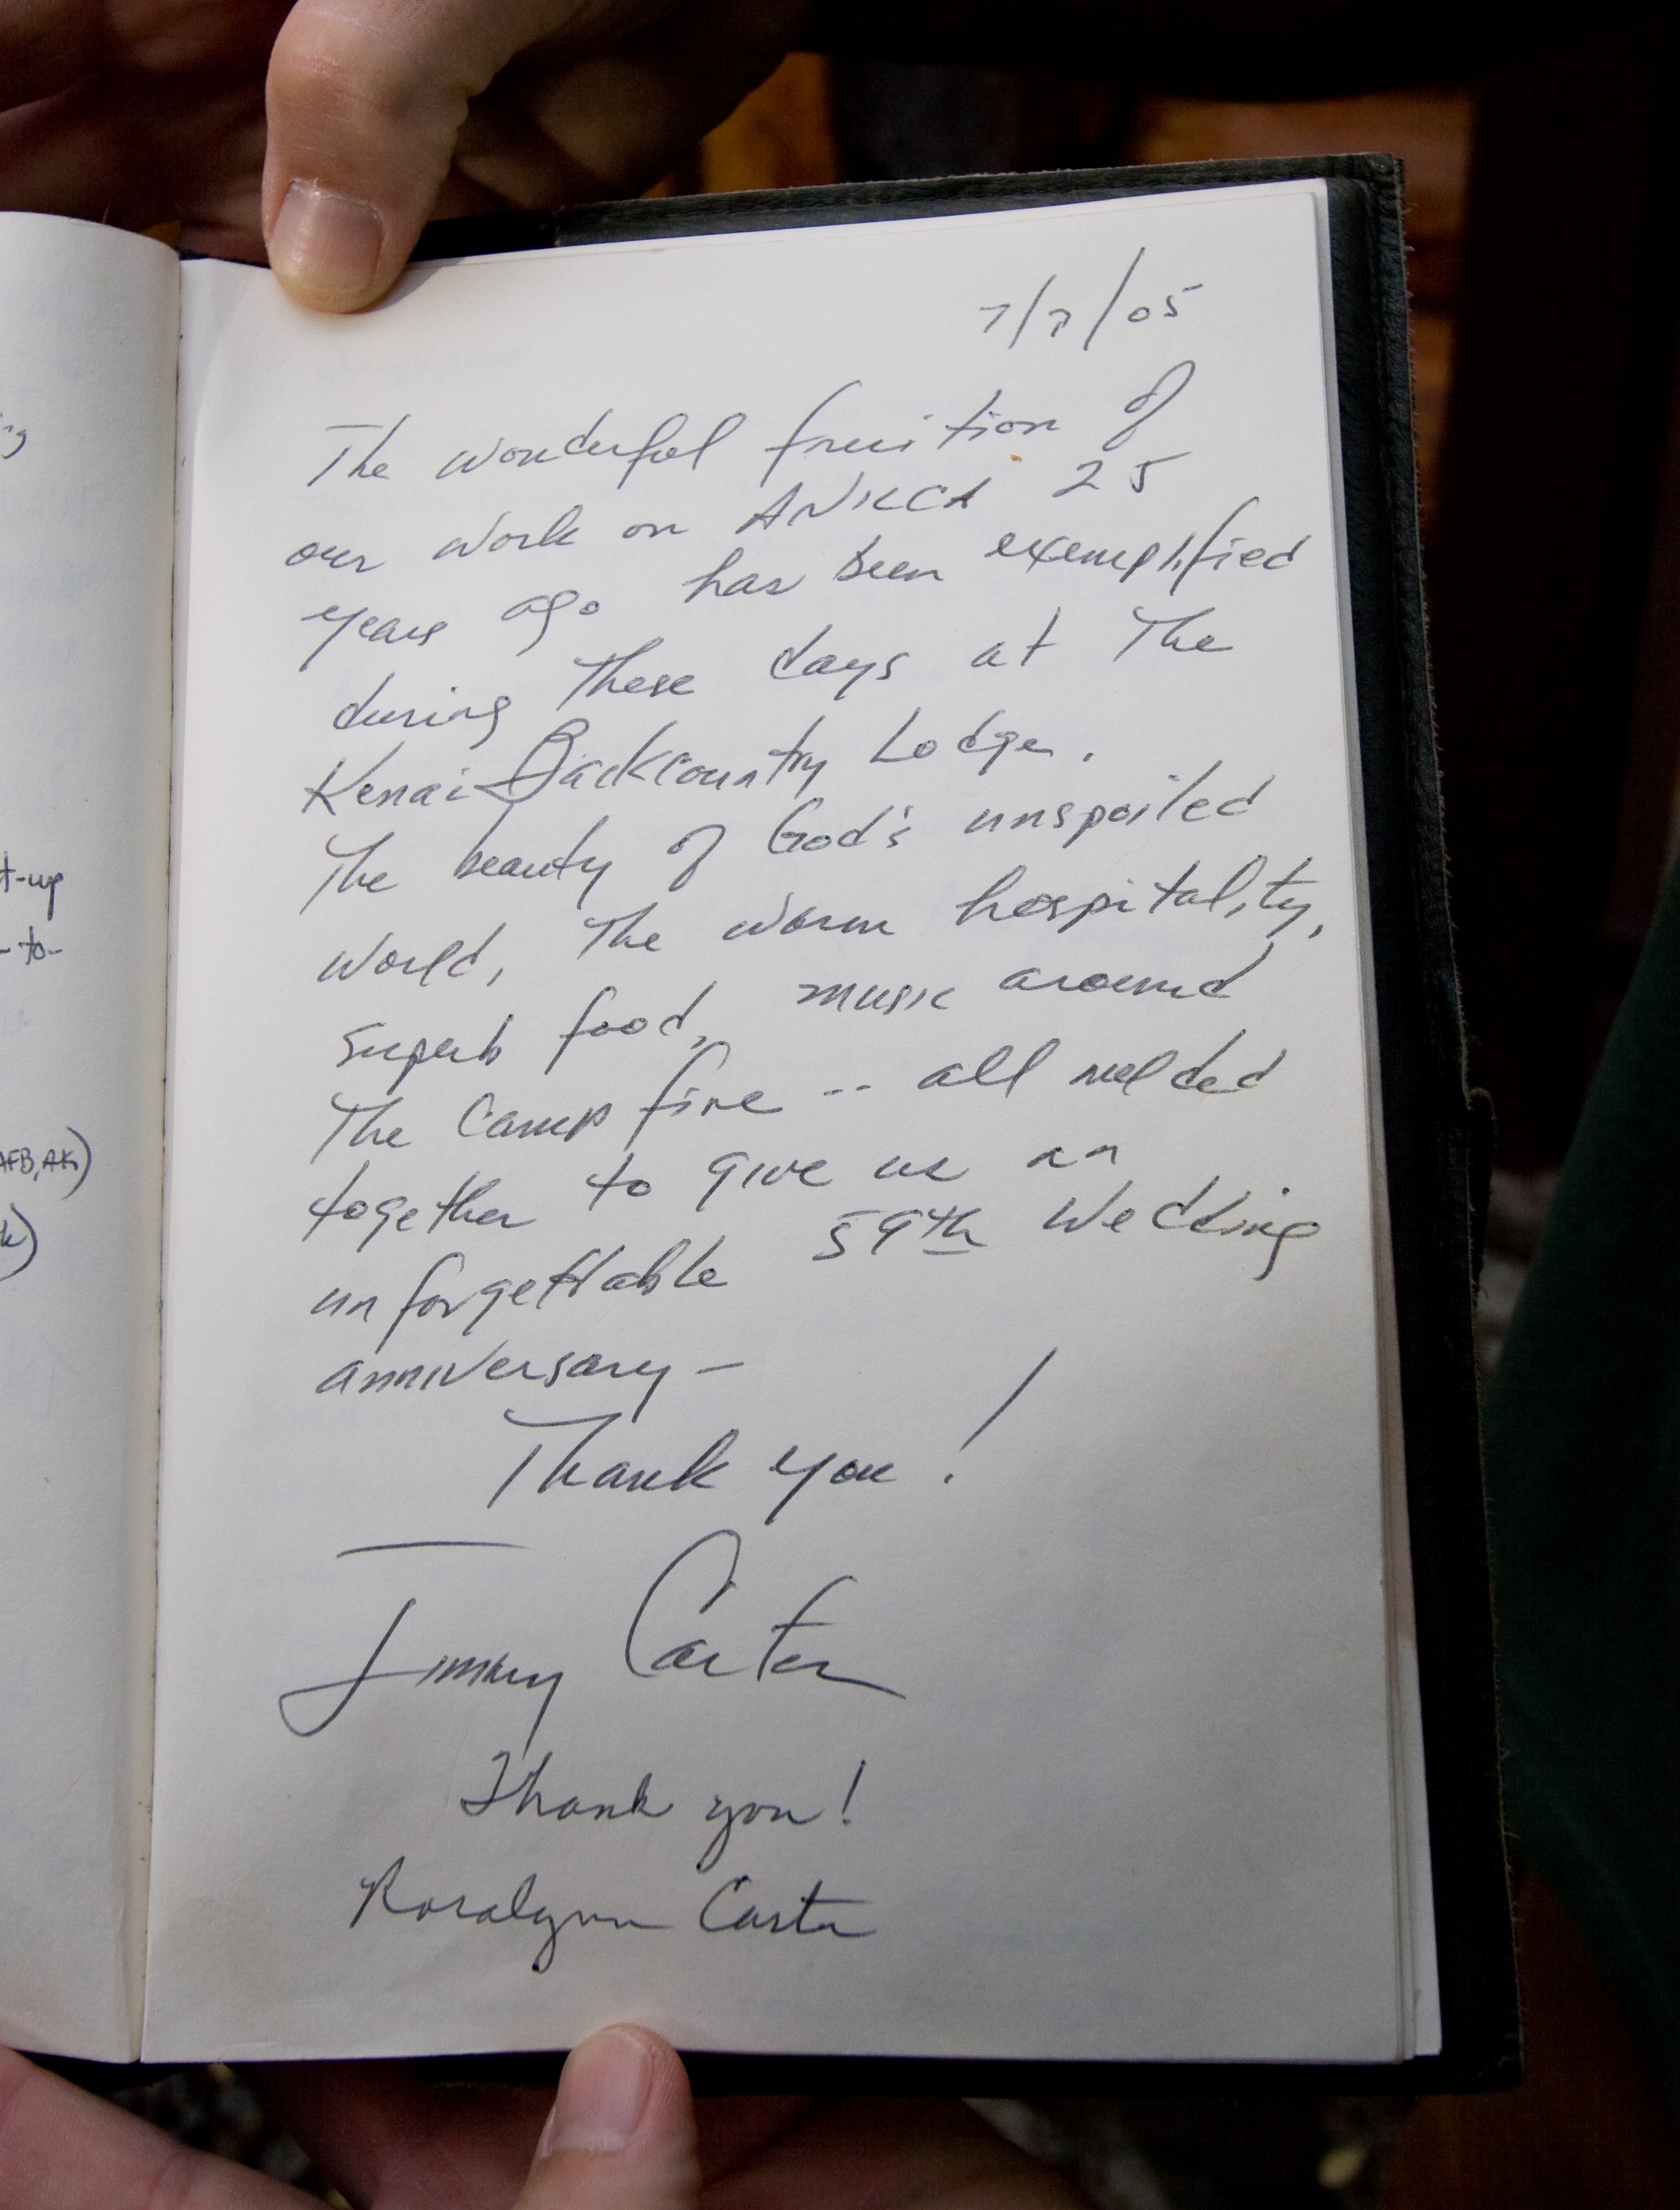 ng
t-up
- to-
AFB, AK)
k)
7/7/05
The wonderful fruition of
our work on ANILCA 25
years ago has been exemplified
during these days at the
Kenai Backcountry Lodge.
The beauty of God's unspoiled
world, the warm hospitality,
superb food, music around
the camp fire -- all melded
together to give us an
unforgettable 59th wedding
anniversary -
Thank you!
Jimmy Carter
Thank you!
Rosalynn Carter